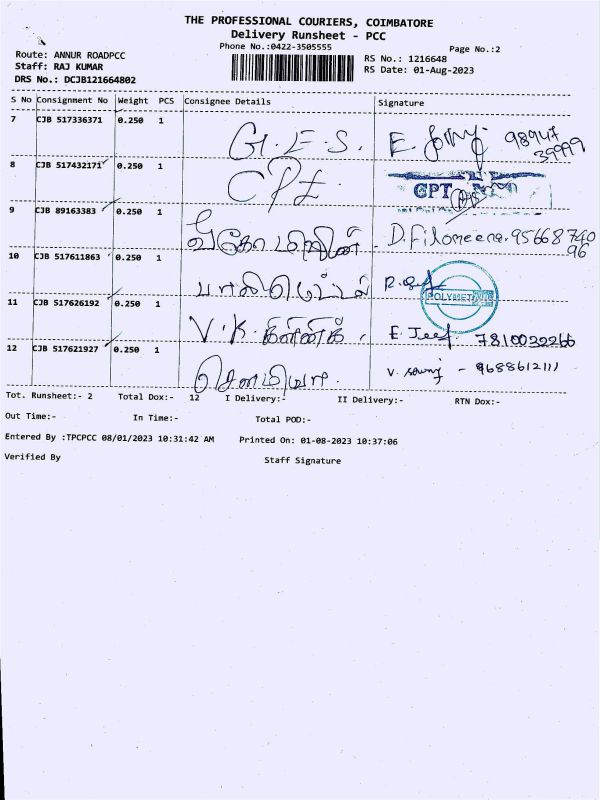 THE PROFESSIONAL COURIERS, COIMBATORE
Delivery Runsheet - PCC
Phone No.:0422-3505555 Page No.:2
Route: ANNUR ROADPCC RS No.: 1216648
Staff: RAJ KUMAR RS Date: 01-Aug-2023
DRS No.: DCJB121664802
S No Consignment No Weight PCS Consignee Details Signature
7 CJB 517336371 0.250 1 G.E.S. E.
8 CJB 517432171 0.250 1 CPT. GPT
9 CJB 89163383 0.250 1 D. Filomeena. 95668740
96
10 CJB 517611863 0.250 1 POLYMET
11 CJB 517626192 0.250 1 V.K. E. Jeef. 7810032266
12 CJB 517621927 0.250 1 V. - 9688612111
Tot. Runsheet:- 2 Total Dox:- 12 I Delivery:- II Delivery:- RTN Dox:-
Out Time:- In Time:- Total POD:-
Entered By :TPCPCC 08/01/2023 10:31:42 AM Printed On: 01-08-2023 10:37:06
Verified By Staff Signature